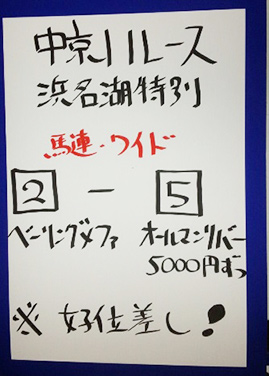 中京11レース
浜名湖特別
馬連・ワイド
2 － 5
ベーリングメファ オールマンリバー
5000円ずつ
※好位差し!